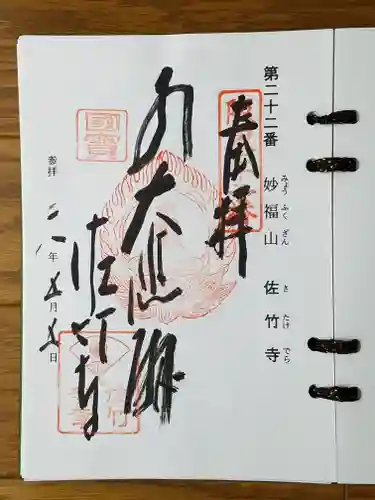 第二十二番 妙福山 佐竹寺
みょう ふく ざん さ たけ でら
奉拝
大悲殿
佐竹寺
國寶
参拝 二八年五月五日